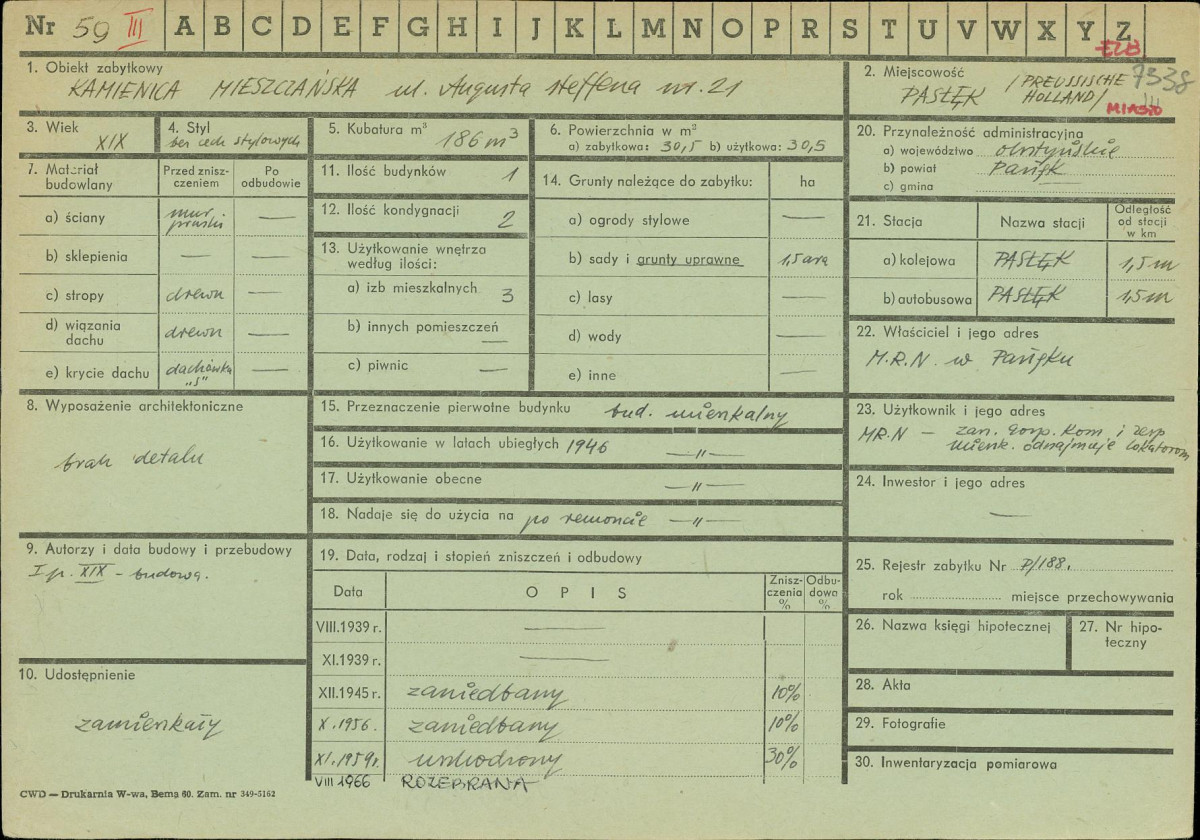 Nr 59 III A B C D E F G H I J K L M N O P R S T U V W X Y Z
EZB
7338
1. Obiekt zabytkowy
KAMIENICA MIESZCZAŃSKA ul. Augusta Steffena nr. 21
2. Miejscowość
PASŁĘK /PREUSSISCHE HOLLAND/
MIASTO
3. Wiek
XIX
4. Styl
bez cech stylowych
5. Kubatura m³
186 m³
6. Powierzchnia w m²
a) zabytkowa: 30,5 b) użytkowa: 30,5
20. Przynależność administracyjna
a) województwo olsztyńskie
b) powiat Pasłęk
c) gmina
7. Materiał budowlany
Przed zniszczeniem
Po odbudowie
a) ściany mur pruski —
b) sklepienia — —
c) stropy drewn —
d) wiązania dachu drewn —
e) krycie dachu dachówka „S" —
11. Ilość budynków 1
12. Ilość kondygnacji 2
13. Użytkowanie wnętrza
według ilości:
a) izb mieszkalnych 3
b) innych pomieszczeń —
c) piwnic —
14. Grunty należące do zabytku: ha
a) ogrody stylowe —
b) sady i grunty uprawne 1,5 ara
c) lasy —
d) wody —
e) inne —
21. Stacja Nazwa stacji Odległość od stacji w km
a) kolejowa PASŁĘK 1,5 m
b) autobusowa PASŁĘK 1,5 m
22. Właściciel i jego adres
M.R.N. w Pasłęku
8. Wyposażenie architektoniczne
brak detalu
15. Przeznaczenie pierwotne budynku bud. mieszkalny
16. Użytkowanie w latach ubiegłych 1946 —„—
17. Użytkowanie obecne —„—
18. Nadaje się do użycia na po remoncie —„—
23. Użytkownik i jego adres
MR.N — zarz. gosp. Kom i
mieszk. odnajmuje lokatorom
24. Inwestor i jego adres
—
9. Autorzy i data budowy i przebudowy
I p. XIX - budowa.
19. Data, rodzaj i stopień zniszczeń i odbudowy
Data OPIS Zniszczenia % Odbudowa %
VIII.1939 r. —
XI.1939 r. —
XII.1945 r. zaniedbany 10%
X.1956. zaniedbany 10%
XI.1959r. uszkodzony 30%
VIII 1966 ROZEBRANA
25. Rejestr zabytku Nr P/188.
rok miejsce przechowywania
26. Nazwa księgi hipotecznej
27. Nr hipoteczny
10. Udostępnienie
zamieszkały
28. Akta
29. Fotografie
30. Inwentaryzacja pomiarowa
CWD — Drukarnia W-wa, Bema 60. Zam. nr 349-5162